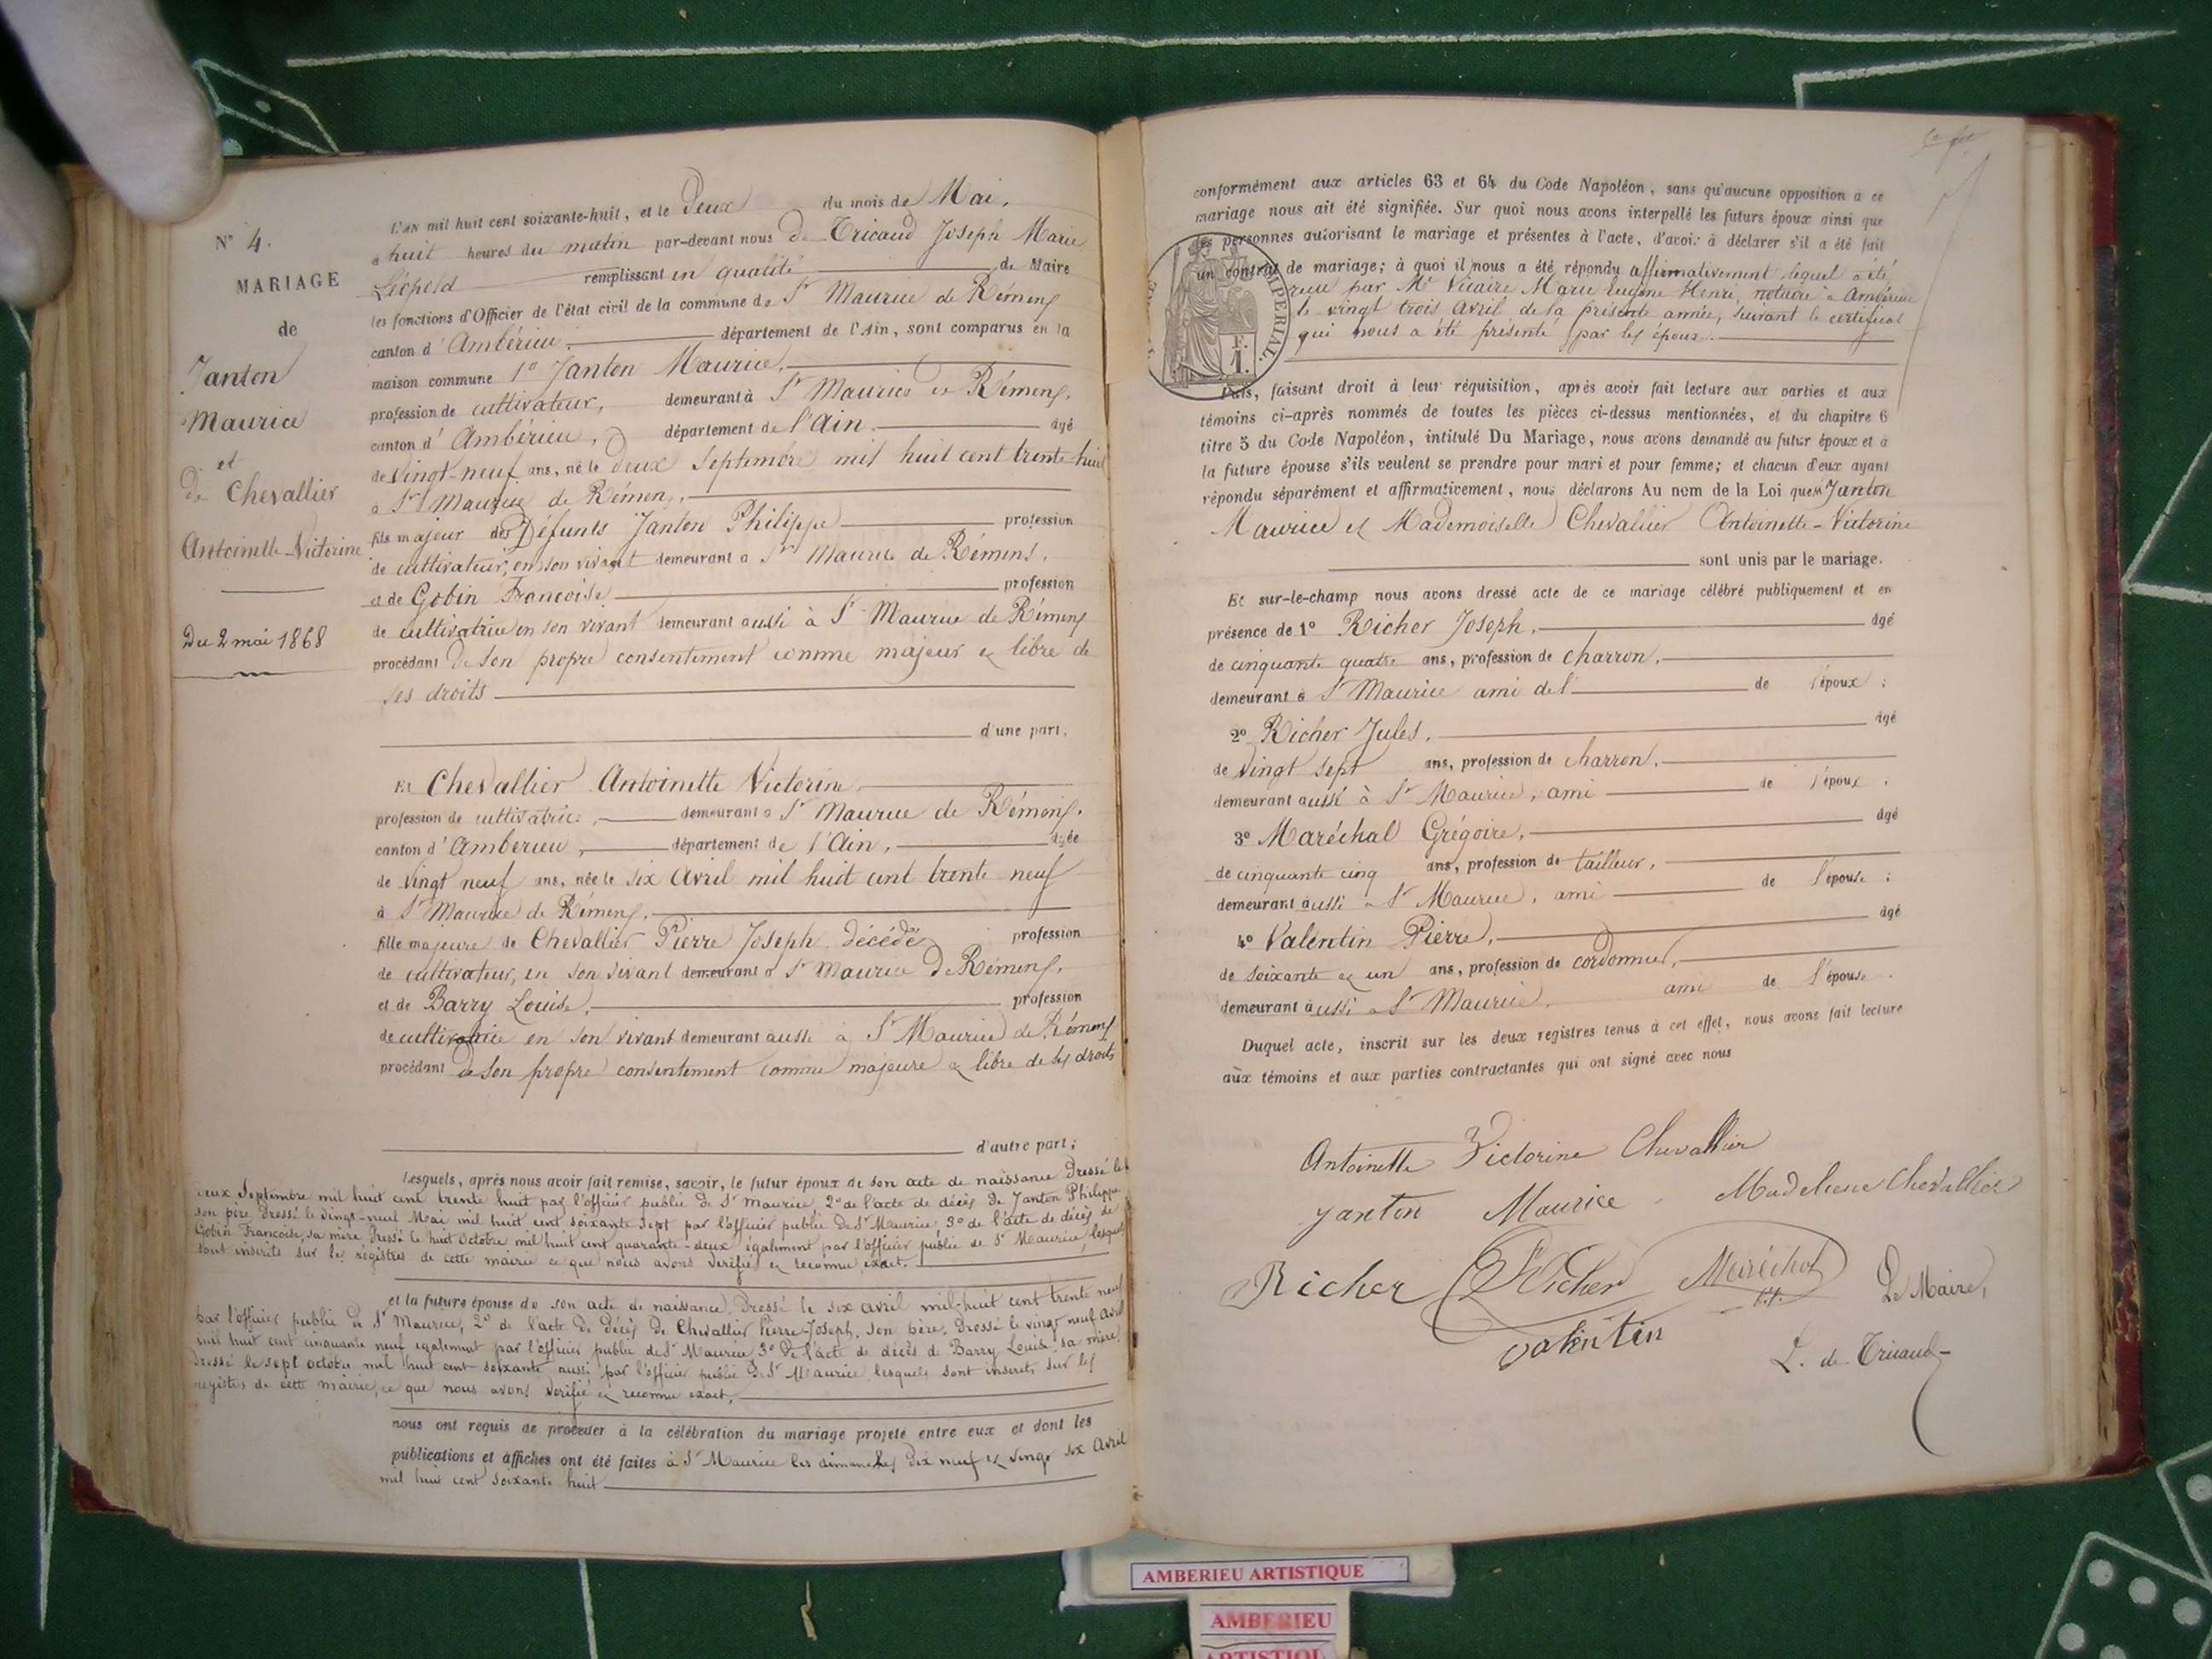 N° 4.
MARIAGE
de
Janton
Maurice
et
De Chevallier
Antoinette-Victorine
Du 2 mai 1868
L'AN mil huit cent soixante-huit, et le deux du mois de Mai,
à huit heures du matin par-devant nous De Tricaud Joseph Marie
Léopold remplissant en qualité de Maire
les fonctions d'Officier de l'état civil de la commune de St Maurice de Rémens
canton d'Ambérieu, département de l'Ain, sont comparus en la
maison commune 1° Janton Maurice,
profession de cultivateur, demeurant à St Maurice de Rémens,
canton d'Ambérieu, département de l'Ain. âgé
de vingt-neuf ans, né le deux Septembre mil huit cent trente huit
à St Maurice de Rémens,
fils majeur des Défunts Janton Philippe profession
de cultivateur, en son vivant demeurant à St Maurice de Rémens.
et de Gobin Francoise profession
de cultivatrice en son vivant demeurant aussi à St Maurice de Rémens
procédant de son propre consentement comme majeur et libre de
ses droits
d'une part,
Et Chevallier Antoinette Victorine,
profession de cultivatrice, demeurant à St Maurice de Rémens,
canton d'Amberieu, département de l'Ain, âgée
de vingt neuf ans, née le six Avril mil huit cent trente neuf
à St Maurice de Rémens,
fille majeure de Chevallier Pierre Joseph décédé profession
de cultivateur, en son vivant demeurant à St Maurice De Rémens,
et de Barry Louise, profession
de cultivatrice en son vivant demeurant aussi à St Maurice de Rémens
procédant de son propre consentement comme majeure et libre de ses droits
d'autre part;
Lesquels, après nous avoir fait remise, savoir, le futur époux de son acte de naissance Dressé le
deux Septembre mil huit cent trente huit par l'officier public de St Maurice, 2° de l'acte de décès de Janton Philippe
son père Dressé le vingt-neuf Mai mil huit cent soixante sept par l'officier public de St Maurice, 3° de l'acte de décès de
Gobin Francoise, sa mère, Dressé le huit Octobre mil huit cent quarante-deux également par l'officier public de St Maurice, lesquels
sont inscrits sur les registres de cette mairie ce que nous avons vérifié et reconnu exact.
et la future épouse de son acte de naissance, Dressé le six avril mil-huit cent trente neuf
par l'officier public de St Maurice, 2° de l'acte de décès de Chevallier Pierre-Joseph, son père, Dressé le vingt neuf Avril
mil huit cent cinquante neuf également par l'officier public de St Maurice 3° de l'acte de décès de Barry Louise sa mère
Dressé le sept octobre mil huit cent soixante aussi par l'officier public de St Maurice, lesquels sont inscrits sur les
registres de cette mairie, ce que nous avons vérifié et reconnu exact,
nous ont requis de procéder à la célébration du mariage projeté entre eux et dont les
publications et affiches ont été faites à St Maurice les dimanches Dix neuf et vingt six Avril
mil huit cent soixante huit
conformément aux articles 63 et 64 du Code Napoléon, sans qu'aucune opposition à ce
mariage nous ait été signifiée. Sur quoi nous avons interpellé les futurs époux ainsi que
les personnes autorisant le mariage et présentes à l'acte, d'avoir à déclarer s'il a été fait
un contrat de mariage; à quoi il nous a été répondu affirmativement lequel a été
reçu par Me Vicaire Marie Eugène Henri, notaire à Ambérieu
le vingt trois Avril de la présente année, suivant le certificat
qui nous a été présenté par les époux.
IMPERIAL.
F.
1.
Puis, faisant droit à leur réquisition, après avoir fait lecture aux parties et aux
témoins ci-après nommés de toutes les pièces ci-dessus mentionnées, et du chapitre 6
titre 5 du Code Napoléon, intitulé Du Mariage, nous avons demandé au futur époux et à
la future épouse s'ils veulent se prendre pour mari et pour femme; et chacun d'eux ayant
répondu séparément et affirmativement, nous déclarons Au nom de la Loi que M Janton
Maurice et Mademoiselle Chevallier Antoinette-Victorine
sont unis par le mariage.
Et sur-le-champ nous avons dressé acte de ce mariage célébré publiquement et en
présence de 1° Richer Joseph, âgé
de cinquante quatre ans, profession de charron,
demeurant à St Maurice ami de l' de l'époux;
2° Richer Jules, âgé
de vingt sept ans, profession de charron,
demeurant aussi à St Maurice, ami de l'époux.
3° Maréchal Grégoire, âgé
de cinquante cinq ans, profession de tailleur,
demeurant aussi à St Maurice, ami de l'épouse;
4° Valentin Pierre, âgé
de soixante et un ans, profession de cordonnier,
demeurant aussi à St Maurice, ami de l'épouse.
Duquel acte, inscrit sur les deux registres tenus à cet effet, nous avons fait lecture
aux témoins et aux parties contractantes qui ont signé avec nous
Antoinette Victorine Chevallier
Janton Maurice Madeleine Chevallier
Richer Richer Maréchal Le Maire,
Valentin
L. de Tricaud
AMBERIEU ARTISTIQUE
AMBERIEU
ARTISTIQUE